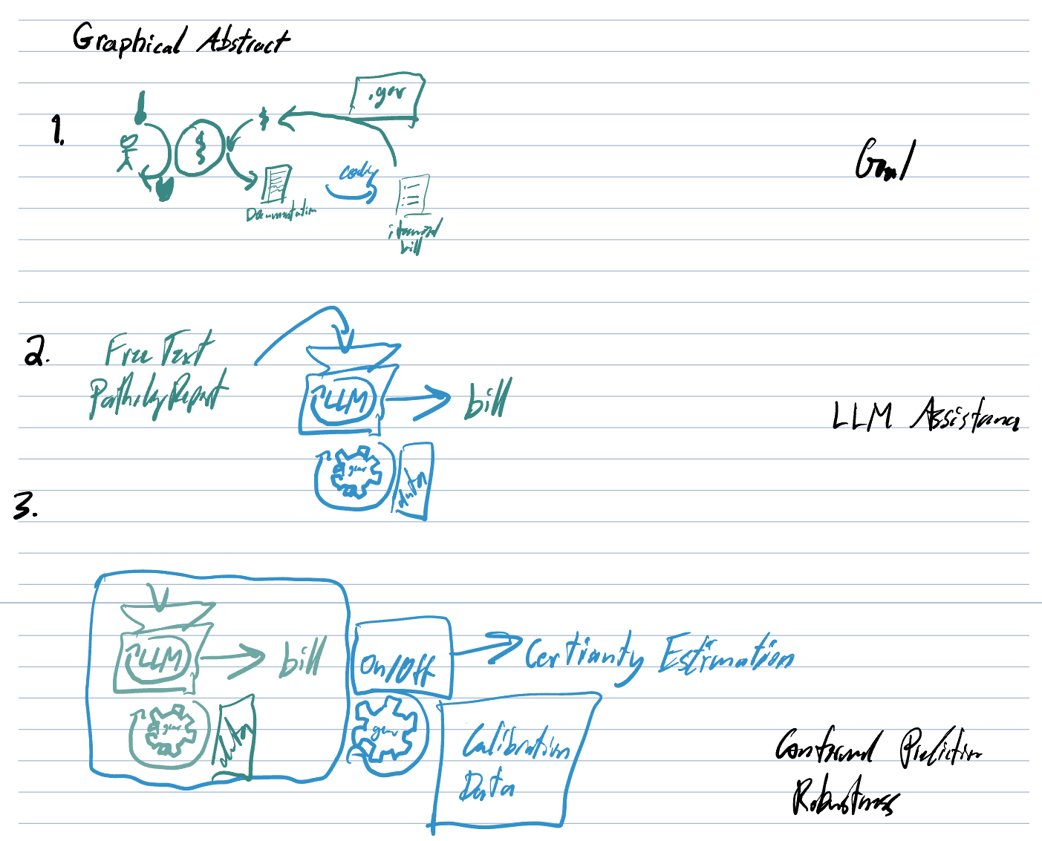 Graphical Abstract
1.
.gov
$
$
coding
Documentation
itemized
bill
Goal
2.
Free Text
Pathology Report
LLM
bill
gear
data
LLM Assistance
3.
LLM
bill
gear
data
On/Off
Certianty Estimation
gear
Calibration
Data
Prediction
Robustness